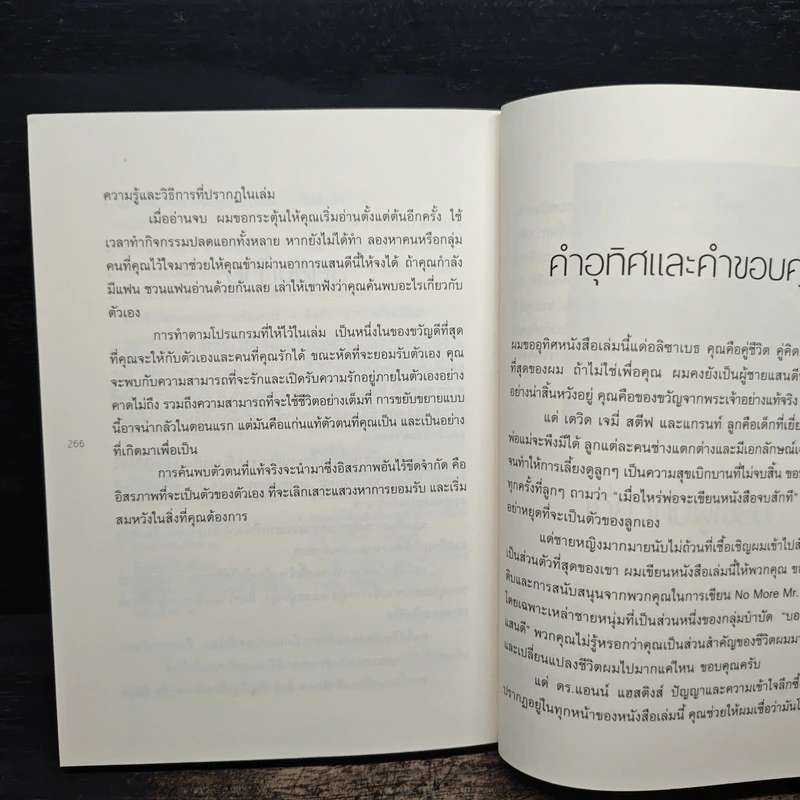 ความรู้และวิธีการที่ปรากฏในเล่ม
เมื่ออ่านจบ ผมขอกระตุ้นให้คุณเริ่มอ่านตั้งแต่ต้นอีกครั้ง ใช้
เวลาทำกิจกรรมปลดแอกทั้งหลาย หากยังไม่ได้ทำ ลองหาคนหรือกลุ่ม
คนที่คุณไว้ใจมาช่วยให้คุณข้ามผ่านอาการแสนดีนี้ให้จงได้ ถ้าคุณกำลัง
มีแฟน ชวนแฟนอ่านด้วยกันเลย เล่าให้เขาฟังว่าคุณค้นพบอะไรเกี่ยวกับ
ตัวเอง
การทำตามโปรแกรมที่ให้ไว้ในเล่ม เป็นหนึ่งในของขวัญดีที่สุด
ที่คุณจะให้กับตัวเองและคนที่คุณรักได้ ขณะหัดที่จะยอมรับตัวเอง คุณ
จะพบกับความสามารถที่จะรักและเปิดรับความรักอยู่ภายในตัวเองอย่าง
คาดไม่ถึง รวมถึงความสามารถที่จะใช้ชีวิตอย่างเต็มที่ การขยับขยายแบบ
นี้อาจน่ากลัวในตอนแรก แต่มันคือแก่นแท้ตัวตนที่คุณเป็น และเป็นอย่าง
ที่เกิดมาเพื่อเป็น
การค้นพบตัวตนที่แท้จริงจะนำมาซึ่งอิสรภาพอันไร้ขีดจำกัด คือ
อิสรภาพที่จะเป็นตัวของตัวเอง ที่จะเลิกเสาะแสวงหาการยอมรับ และเริ่ม
สมหวังในสิ่งที่คุณต้องการ
266
คำอุทิศและคำขอบคุ
ผมขออุทิศหนังสือเล่มนี้แด่อลิซาเบธ คุณคือคู่ชีวิต คู่คิด
ที่สุดของผม ถ้าไม่ใช่เพื่อคุณ ผมคงยังเป็นผู้ชายแสนดี
อย่างน่าสิ้นหวังอยู่ คุณคือของขวัญจากพระเจ้าอย่างแท้จริง
แด่ เดวิด เจมี่ สตีฟ และแกรนท์ ลูกคือเด็กที่เยี่ย
พ่อแม่จะพึงมีได้ ลูกแต่ละคนช่างแตกต่างและมีเอกลักษณ์เ
จนทำให้การเลี้ยงดูลูกๆ เป็นความสุขเบิกบานที่ไม่จบสิ้น ขอ
ทุกครั้งที่ลูกๆ ถามว่า “เมื่อไหร่พ่อจะเขียนหนังสือจบสักที”
อย่าหยุดที่จะเป็นตัวของลูกเอง
แด่ชายหญิงมากมายนับไม่ถ้วนที่เชื้อเชิญผมเข้าไปสั
เป็นส่วนตัวที่สุดของเขา ผมเขียนหนังสือเล่มนี้ให้พวกคุณ ขอ
ดิบและการสนับสนุนจากพวกคุณในการเขียน No More Mr.
โดยเฉพาะเหล่าชายหนุ่มที่เป็นส่วนหนึ่งของกลุ่มบำบัด “บอ
แสนดี” พวกคุณไม่รู้หรอกว่าคุณเป็นส่วนสำคัญของชีวิตผมมา
และเปลี่ยนแปลงชีวิตผมไปมากแค่ไหน ขอบคุณครับ
แด่ ดร.แอนน์ แฮสติงส์ ปัญญาและความเข้าใจลึกซึ้
ปรากฏอยู่ในทุกหน้าของหนังสือเล่มนี้ คุณช่วยให้ผมเชื่อว่ามัน